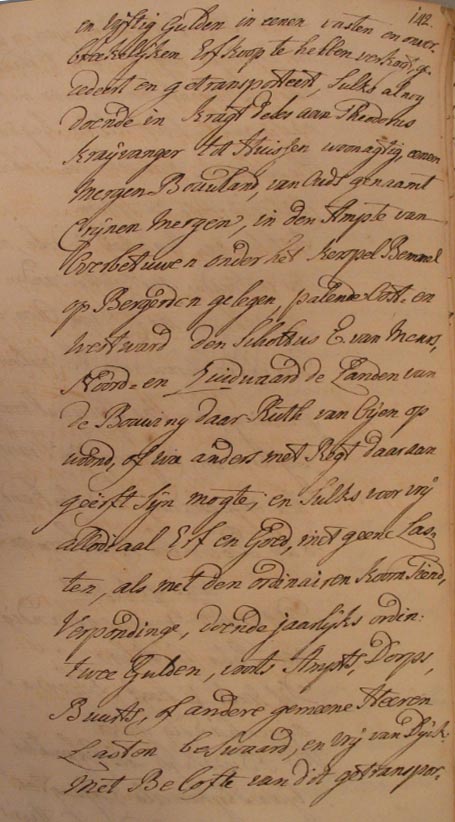 142.
en vijftig Gulden in eenen vasten en onver
breekelijken Erfkoop te hebben verkoft, ge
cedeert en getransporteert, Sulks alnog
doende in kragt deses aan Theodorus
Kraijvanger tot Huissen woonagtig, eenen
mergen Bouwland, van Ouds genaamt
Crijnen mergen, in den Ampte van
Overbetuwen onder het Kerspel Bemmel
op Bergerden gelegen, palende Oost- en
westward den Scholtus E. van Meurs,
Noord- en Zuidwaard de Landen van
de Bouwing daar Ruth van Eijen op
woond, of wie anders met Regt daar aan
geërft Sijn mogte; en Sulks voor vrij
allodiaal Erf en Goed, met geene Las-
ten, als met den ordinairen Koorn Tiend,
Verpondinge, doende jaarlijks ordin:
twee Gulden, voorts Ampts, Dorps,
Buurts, of andere gemeene Heeren
Lasten beswaard, en vrij van Dijck
met Belofte van dit getranspor-